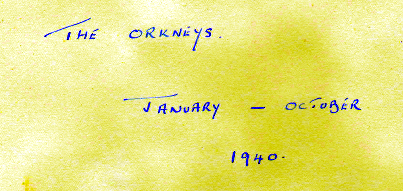 THE ORKNEYS.
JANUARY – OCTOBER
1940.